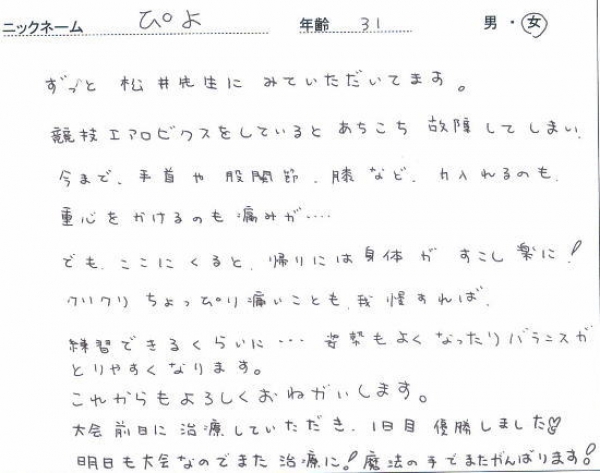 ニックネーム ぴよ 年齢 31 男・女
ずっと 松井先生に みていただいてます。
競技エアロビクスをしていると あちこち 故障してしまい、
今まで、手首や 股関節、膝など、力入れるのも、
重心をかけるのも痛みが‥‥
でも、ここにくると、帰りには身体が すこし楽に!
クリクリ ちょっぴり痛いことも、我慢すれば、
練習できるくらいに… 姿勢もよくなったりバランスが
とりやすくなります。
これからもよろしくおねがいします。
大会前日に 治療していただき、1日目 優勝しました♡
明日も大会なのでまた 治療に! 魔法の手でまたがんばります!